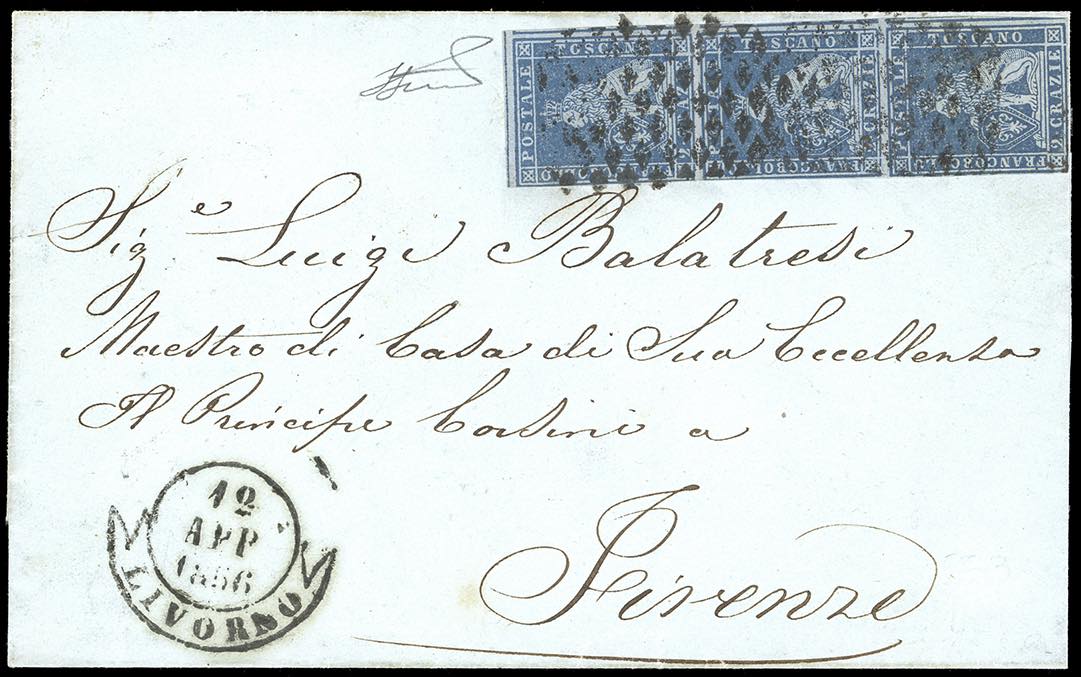 POSTALE TOSCANO 2 CRAZIE
TOSCANO 2 CRAZIE FRANCOBOL
POSTALE TOSCANO 2 CRAZIE FRANCOBOL
Sig.e Luigi Balatresi
Maestro di Casa di Sua Eccellenza
Il Principe Corsini a
Firenze
12
APR
1856
LIVORNO